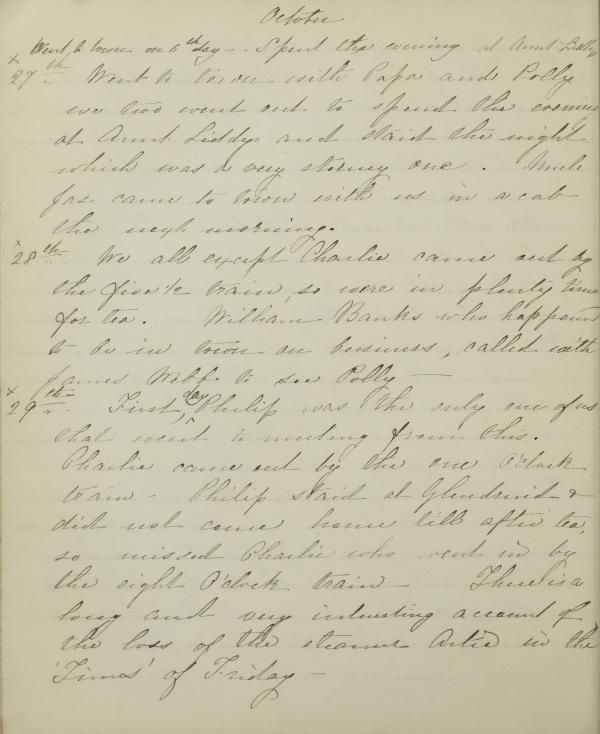 October
Went to town on 6th day -. Spent the evening at Aunt Liddy's
x 27th. Went to town with Papa and Polly
we two went out to spend the evening
at Aunt Liddys and staid the night
which was a very stormy one. Uncle
Jas. came to town with us in a cab
the next morning.
x 28th. We all except Charlie came out by
the five 1/2 train, so were in plenty time
for tea. William Banks who happened
to be in town on business, called with
James Webb to see Polly —
x 29th. First day, Philip was the only one of us
that went to meeting from this.
Charlie came out by the one O'clock
train - Philip staid at Glendruid &
did not come home till after tea,
so missed Charlie who went in by
the eight O'clock train — There is a
long and very interesting account of
the loss of the steamer Artic in the
'Times' of Friday —